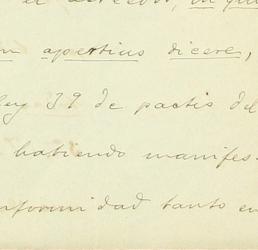 el acreedor, in qu
m apertius dicere,
ley 39 de pactis del
habiendo manifes
nformidad tanto en